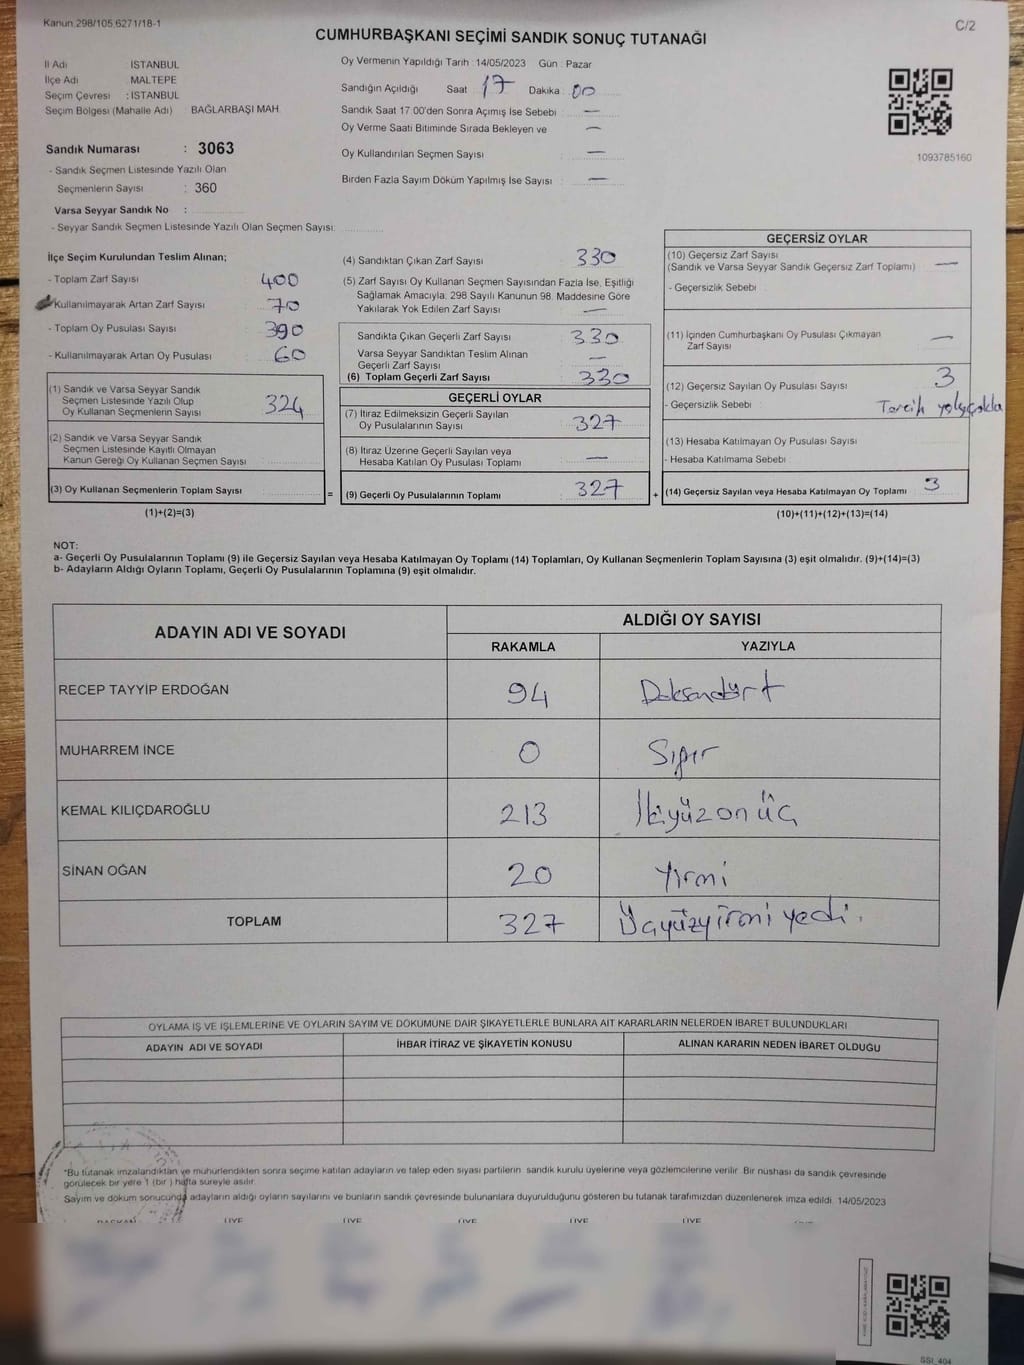 Kanun.298/105.6271/18-1
C/2
CUMHURBAŞKANI SEÇİMİ SANDIK SONUÇ TUTANAĞI
İl Adı : İSTANBUL
İlçe Adı : MALTEPE
Seçim Çevresi : İSTANBUL
Seçim Bölgesi (Mahalle Adı) : BAĞLARBAŞI MAH.
Sandık Numarası : 3063
- Sandık Seçmen Listesinde Yazılı Olan
Seçmenlerin Sayısı : 360
Varsa Seyyar Sandık No :
- Seyyar Sandık Seçmen Listesinde Yazılı Olan Seçmen Sayısı:
Oy Vermenin Yapıldığı Tarih : 14/05/2023 Gün : Pazar
Sandığın Açıldığı Saat : 17 Dakika : 00
Sandık Saat 17:00'den Sonra Açımış İse Sebebi : —
Oy Verme Saati Bitiminde Sırada Bekleyen ve —
Oy Kullandırılan Seçmen Sayısı : —
Birden Fazla Sayım Döküm Yapılmış İse Sayısı : —
1093785160
İlçe Seçim Kurulundan Teslim Alınan;
- Toplam Zarf Sayısı : 400
- Kullanılmayarak Artan Zarf Sayısı : 70
- Toplam Oy Pusulası Sayısı : 390
- Kullanılmayarak Artan Oy Pusulası : 60
(1) Sandık ve Varsa Seyyar Sandık
Seçmen Listesinde Yazılı Olup
Oy Kullanan Seçmenlerin Sayısı : 324
(2) Sandık ve Varsa Seyyar Sandık
Seçmen Listesinde Kayıtlı Olmayan
Kanun Gereği Oy Kullanan Seçmen Sayısı :
(3) Oy Kullanan Seçmenlerin Toplam Sayısı :
(1)+(2)=(3)
=
(4) Sandıktan Çıkan Zarf Sayısı : 330
(5) Zarf Sayısı Oy Kullanan Seçmen Sayısından Fazla İse, Eşitliği
Sağlamak Amacıyla; 298 Sayılı Kanunun 98. Maddesine Göre
Yakılarak Yok Edilen Zarf Sayısı : —
Sandıkta Çıkan Geçerli Zarf Sayısı : 330
Varsa Seyyar Sandıktan Teslim Alınan
Geçerli Zarf Sayısı : —
(6) Toplam Geçerli Zarf Sayısı : 330
GEÇERLİ OYLAR
(7) İtiraz Edilmeksizin Geçerli Sayılan
Oy Pusulalarının Sayısı : 327
(8) İtiraz Üzerine Geçerli Sayılan veya
Hesaba Katılan Oy Pusulası Toplamı : —
(9) Geçerli Oy Pusulalarının Toplamı : 327
+
GEÇERSİZ OYLAR
(10) Geçersiz Zarf Sayısı
(Sandık ve Varsa Seyyar Sandık Geçersiz Zarf Toplamı) : —
- Geçersizlik Sebebi :
(11) İçinden Cumhurbaşkanı Oy Pusulası Çıkmayan
Zarf Sayısı : —
(12) Geçersiz Sayılan Oy Pusulası Sayısı : 3
- Geçersizlik Sebebi : Tercih
(13) Hesaba Katılmayan Oy Pusulası Sayısı :
- Hesaba Katılmama Sebebi :
(14) Geçersiz Sayılan veya Hesaba Katılmayan Oy Toplamı : 3
(10)+(11)+(12)+(13)=(14)
NOT:
a- Geçerli Oy Pusulalarının Toplamı (9) ile Geçersiz Sayılan veya Hesaba Katılmayan Oy Toplamı (14) Toplamları, Oy Kullanan Seçmenlerin Toplam Sayısına (3) eşit olmalıdır. (9)+(14)=(3)
b- Adayların Aldığı Oyların Toplamı, Geçerli Oy Pusulalarının Toplamına (9) eşit olmalıdır.
ADAYIN ADI VE SOYADI
ALDIĞI OY SAYISI
RAKAMLA YAZIYLA
RECEP TAYYİP ERDOĞAN 94 Doksandört
MUHARREM İNCE 0 Sıfır
KEMAL KILIÇDAROĞLU 213 İkiyüzonüç
SİNAN OĞAN 20 Yirmi
TOPLAM 327 Üçyüzyirmi yedi.
OYLAMA İŞ VE İŞLEMLERİNE VE OYLARIN SAYIM VE DÖKÜMÜNE DAİR ŞİKAYETLERLE BUNLARA AİT KARARLARIN NELERDEN İBARET BULUNDUKLARI
ADAYIN ADI VE SOYADI İHBAR İTİRAZ VE ŞİKAYETİN KONUSU ALINAN KARARIN NEDEN İBARET OLDUĞU
*Bu tutanak imzalandıktan ve mühürlendikten sonra seçime katılan adayların ve talep eden siyasi partilerin sandık kurulu üyelerine veya gözlemcilerine verilir. Bir nüshası da sandık çevresinde
görülecek bir yere 1 (bir) hafta süreyle asılır.
Sayım ve döküm sonucunda adayların aldığı oyların sayılarını ve bunların sandık çevresinde bulunanlara duyurulduğunu gösteren bu tutanak tarafımızdan düzenlenerek imza edildi. 14/05/2023
BAŞKAN ÜYE ÜYE ÜYE ÜYE ÜYE